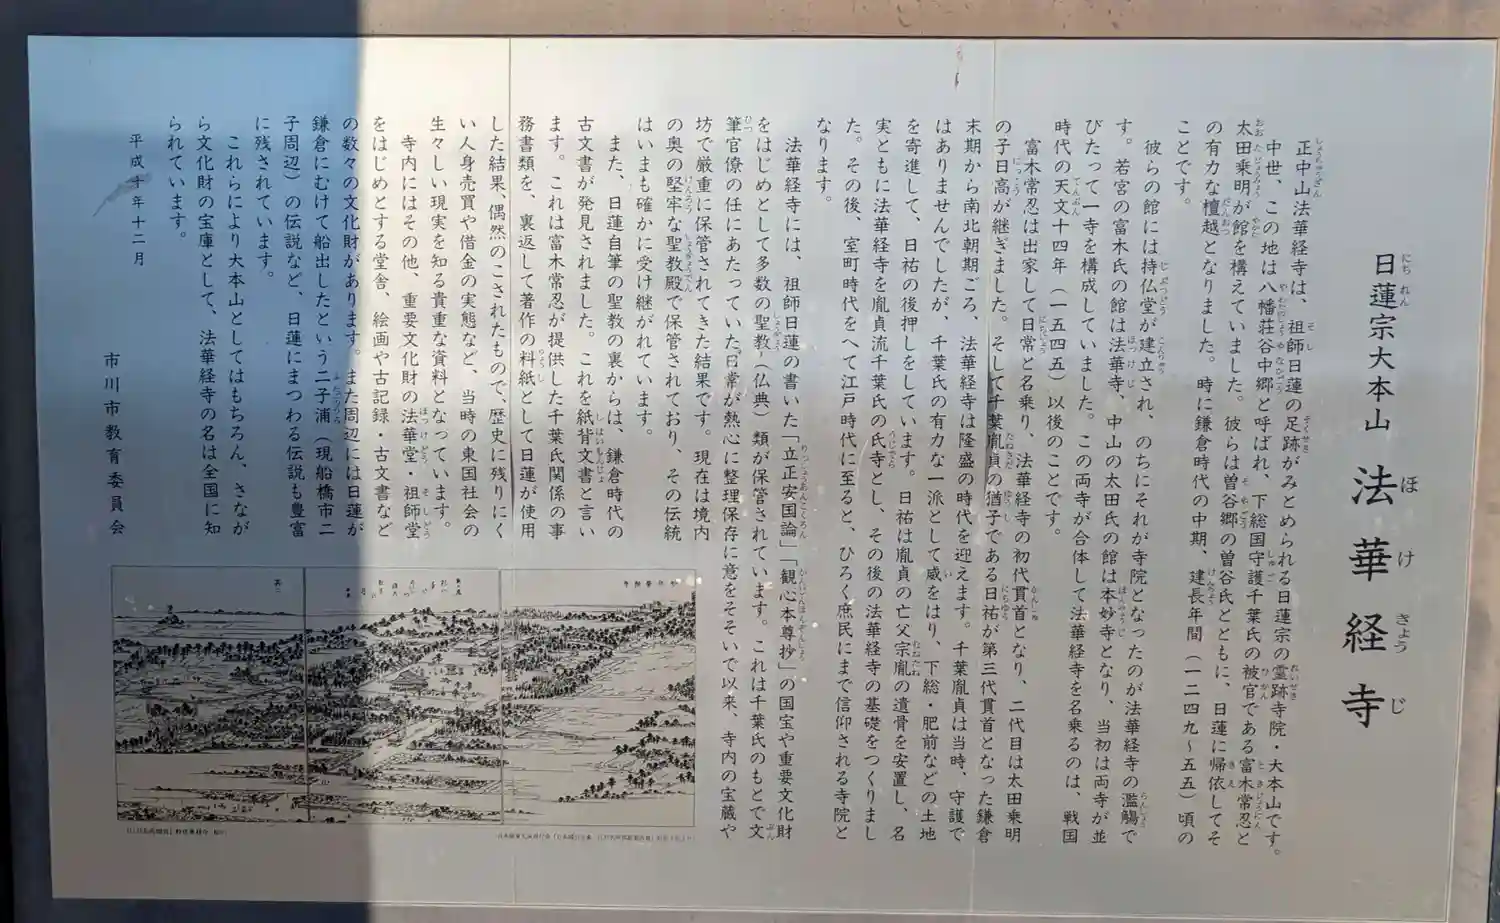 日蓮宗大本山 法華経寺
正中山法華経寺は、祖師日蓮の足跡がみとめられる日蓮宗の霊跡寺院・大本山です。
中世、この地は八幡荘谷中郷と呼ばれ、下総国守護千葉氏の被官である富木常忍と
太田乗明が館を構えていました。彼らは曽谷郷の曽谷氏とともに、日蓮に帰依してそ
の有力な檀越となりました。時に鎌倉時代の中期、建長年間(一二四九〜五五)頃の
ことです。
彼らの館には持仏堂が建立され、のちにそれが寺院となったのが法華経寺の濫觴で
す。若宮の富木氏の館は法華寺、中山の太田氏の館は本妙寺となり、当初は両寺が並
びたって一寺を構成していました。この両寺が合体して法華経寺を名乗るのは、戦国
時代の天文十四年(一五四五)以後のことです。
富木常忍は出家して日常と名乗り、法華経寺の初代貫首となり、二代目は太田乗明
の子日高が継ぎました。そして千葉胤貞の猶子である日祐が第三代貫首となった鎌倉
末期から南北朝期ごろ、法華経寺は隆盛の時代を迎えます。千葉胤貞は当時、守護で
はありませんでしたが、千葉氏の有力な一派として威をはり、下総・肥前などの土地
を寄進して、日祐の後押しをしています。日祐は胤貞の亡父宗胤の遺骨を安置し、名
実ともに法華経寺を胤貞流千葉氏の氏寺とし、その後の法華経寺の基礎をつくりまし
た。その後、室町時代をへて江戸時代に至ると、ひろく庶民にまで信仰される寺院と
なります。
法華経寺には、祖師日蓮の書いた「立正安国論」「観心本尊抄」の国宝や重要文化財
をはじめとして多数の聖教(仏典)類が保管されています。これは千葉氏のもとで文
筆官僚の任にあたっていた日常が熱心に整理保存に意をそそいで以来、寺内の宝蔵や
坊で厳重に保管されてきた結果です。現在は境内
の奥の堅牢な聖教殿で保管されており、その伝統
はいまも確かに受け継がれています。
また、日蓮自筆の聖教の裏からは、鎌倉時代の
古文書が発見されました。これを紙背文書と言い
ます。これは富木常忍が提供した千葉氏関係の事
務書類を、裏返して著作の料紙として日蓮が使用
した結果、偶然のこされたもので、歴史に残りにく
い人身売買や借金の実態など、当時の東国社会の
生々しい現実を知る貴重な資料となっています。
寺内にはその他、重要文化財の法華堂・祖師堂
をはじめとする堂舎、絵画や古記録・古文書など
の数々の文化財があります。また周辺には日蓮が
鎌倉にむけて船出したという二子浦(現船橋市二
子周辺)の伝説など、日蓮にまつわる伝説も豊富
に残されています。
これらにより大本山としてはもちろん、さなが
ら文化財の宝庫として、法華経寺の名は全国に知
られています。
平成十年十二月
市川市教育委員会